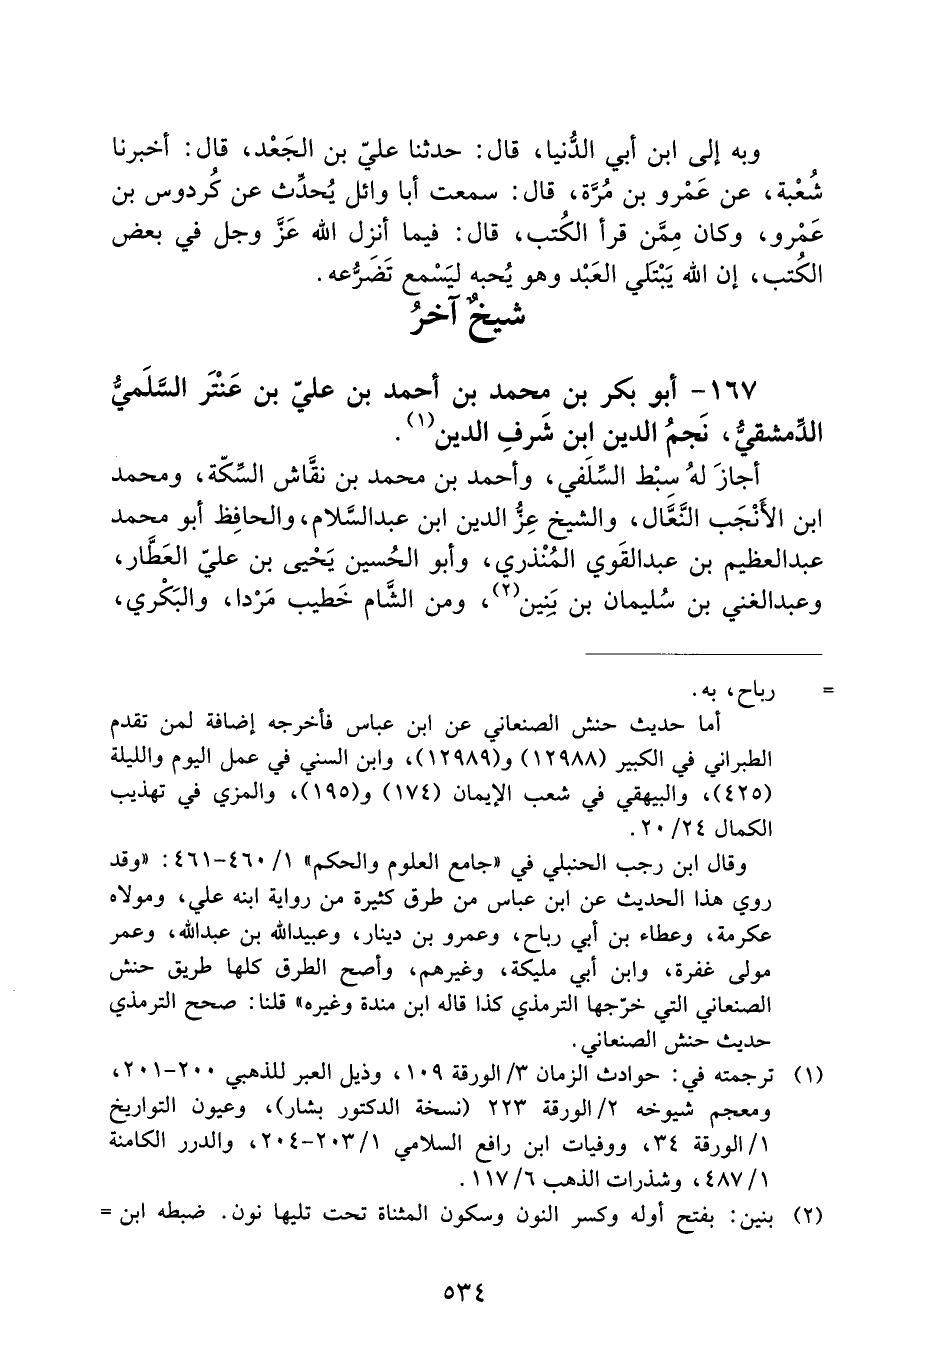 وبه إلى ابن أبي الدُّنيا، قال: حدثنا عليّ بن الجَعْد، قال: أخبرنا
شُعْبة، عن عَمْرو بن مُرَّة، قال: سمعت أبا وائل يُحدِّث عن كُردوس بن
عَمْرو، وكان مِمَّن قرأ الكُتب، قال: فيما أنزل الله عَزَّ وجل في بعض
الكُتب، إن الله يَبْتَلي العَبْد وهو يُحبه ليَسْمع تَضَرُّعه.
شيخٌ آخرُ
١٦٧- أبو بكر بن محمد بن أحمد بن عليّ بن عَنْتَر السَّلَميُّ
الدِّمشقيُّ، نَجمُ الدين ابن شَرفِ الدين(١).
أجازَ لهُ سِبْط السِّلَفي، وأحمد بن محمد بن نقَّاش السِّكّة، ومحمد
ابن الأَنْجَب النَّعَّال، والشيخ عِزُّ الدين ابن عبدالسَّلام، والحافِظ أبو محمد
عبدالعظيم بن عبدالقَوي المُنْذري، وأبو الحُسين يَحْيى بن عليّ العَطَّار،
وعبدالغني بن سُليمان بن بَنِين(٢)، ومن الشَّام خَطيب مَرْدا، والبَكْري،
= رباح، به.
أما حديث حنش الصنعاني عن ابن عباس فأخرجه إضافة لمن تقدم
الطبراني في الكبير (١٢٩٨٨) و(١٢٩٨٩)، وابن السني في عمل اليوم والليلة
(٤٢٥)، والبيهقي في شعب الإيمان (١٧٤) و(١٩٥)، والمزي في تهذيب
الكمال ٢٤/ ٢٠.
وقال ابن رجب الحنبلي في «جامع العلوم والحكم» ١/ ٤٦٠-٤٦١: «وقد
روي هذا الحديث عن ابن عباس من طرق كثيرة من رواية ابنه علي، ومولاه
عكرمة، وعطاء بن أبي رباح، وعمرو بن دينار، وعبيدالله بن عبدالله، وعمر
مولى غفرة، وابن أبي مليكة، وغيرهم، وأصح الطرق كلها طريق حنش
الصنعاني التي خرّجها الترمذي كذا قاله ابن مندة وغيره» قلنا: صحح الترمذي
حديث حنش الصنعاني.
(١) ترجمته في: حوادث الزمان ٣/ الورقة ١٠٩، وذيل العبر للذهبي ٢٠٠-٢٠١،
ومعجم شيوخه ٢/ الورقة ٢٢٣ (نسخة الدكتور بشار)، وعيون التواريخ
١/ الورقة ٣٤، ووفيات ابن رافع السلامي ١/ ٢٠٣-٢٠٤، والدرر الكامنة
١/ ٤٨٧، وشذرات الذهب ٦/ ١١٧.
(٢) بنين: بفتح أوله وكسر النون وسكون المثناة تحت تليها نون. ضبطه ابن =
٥٣٤